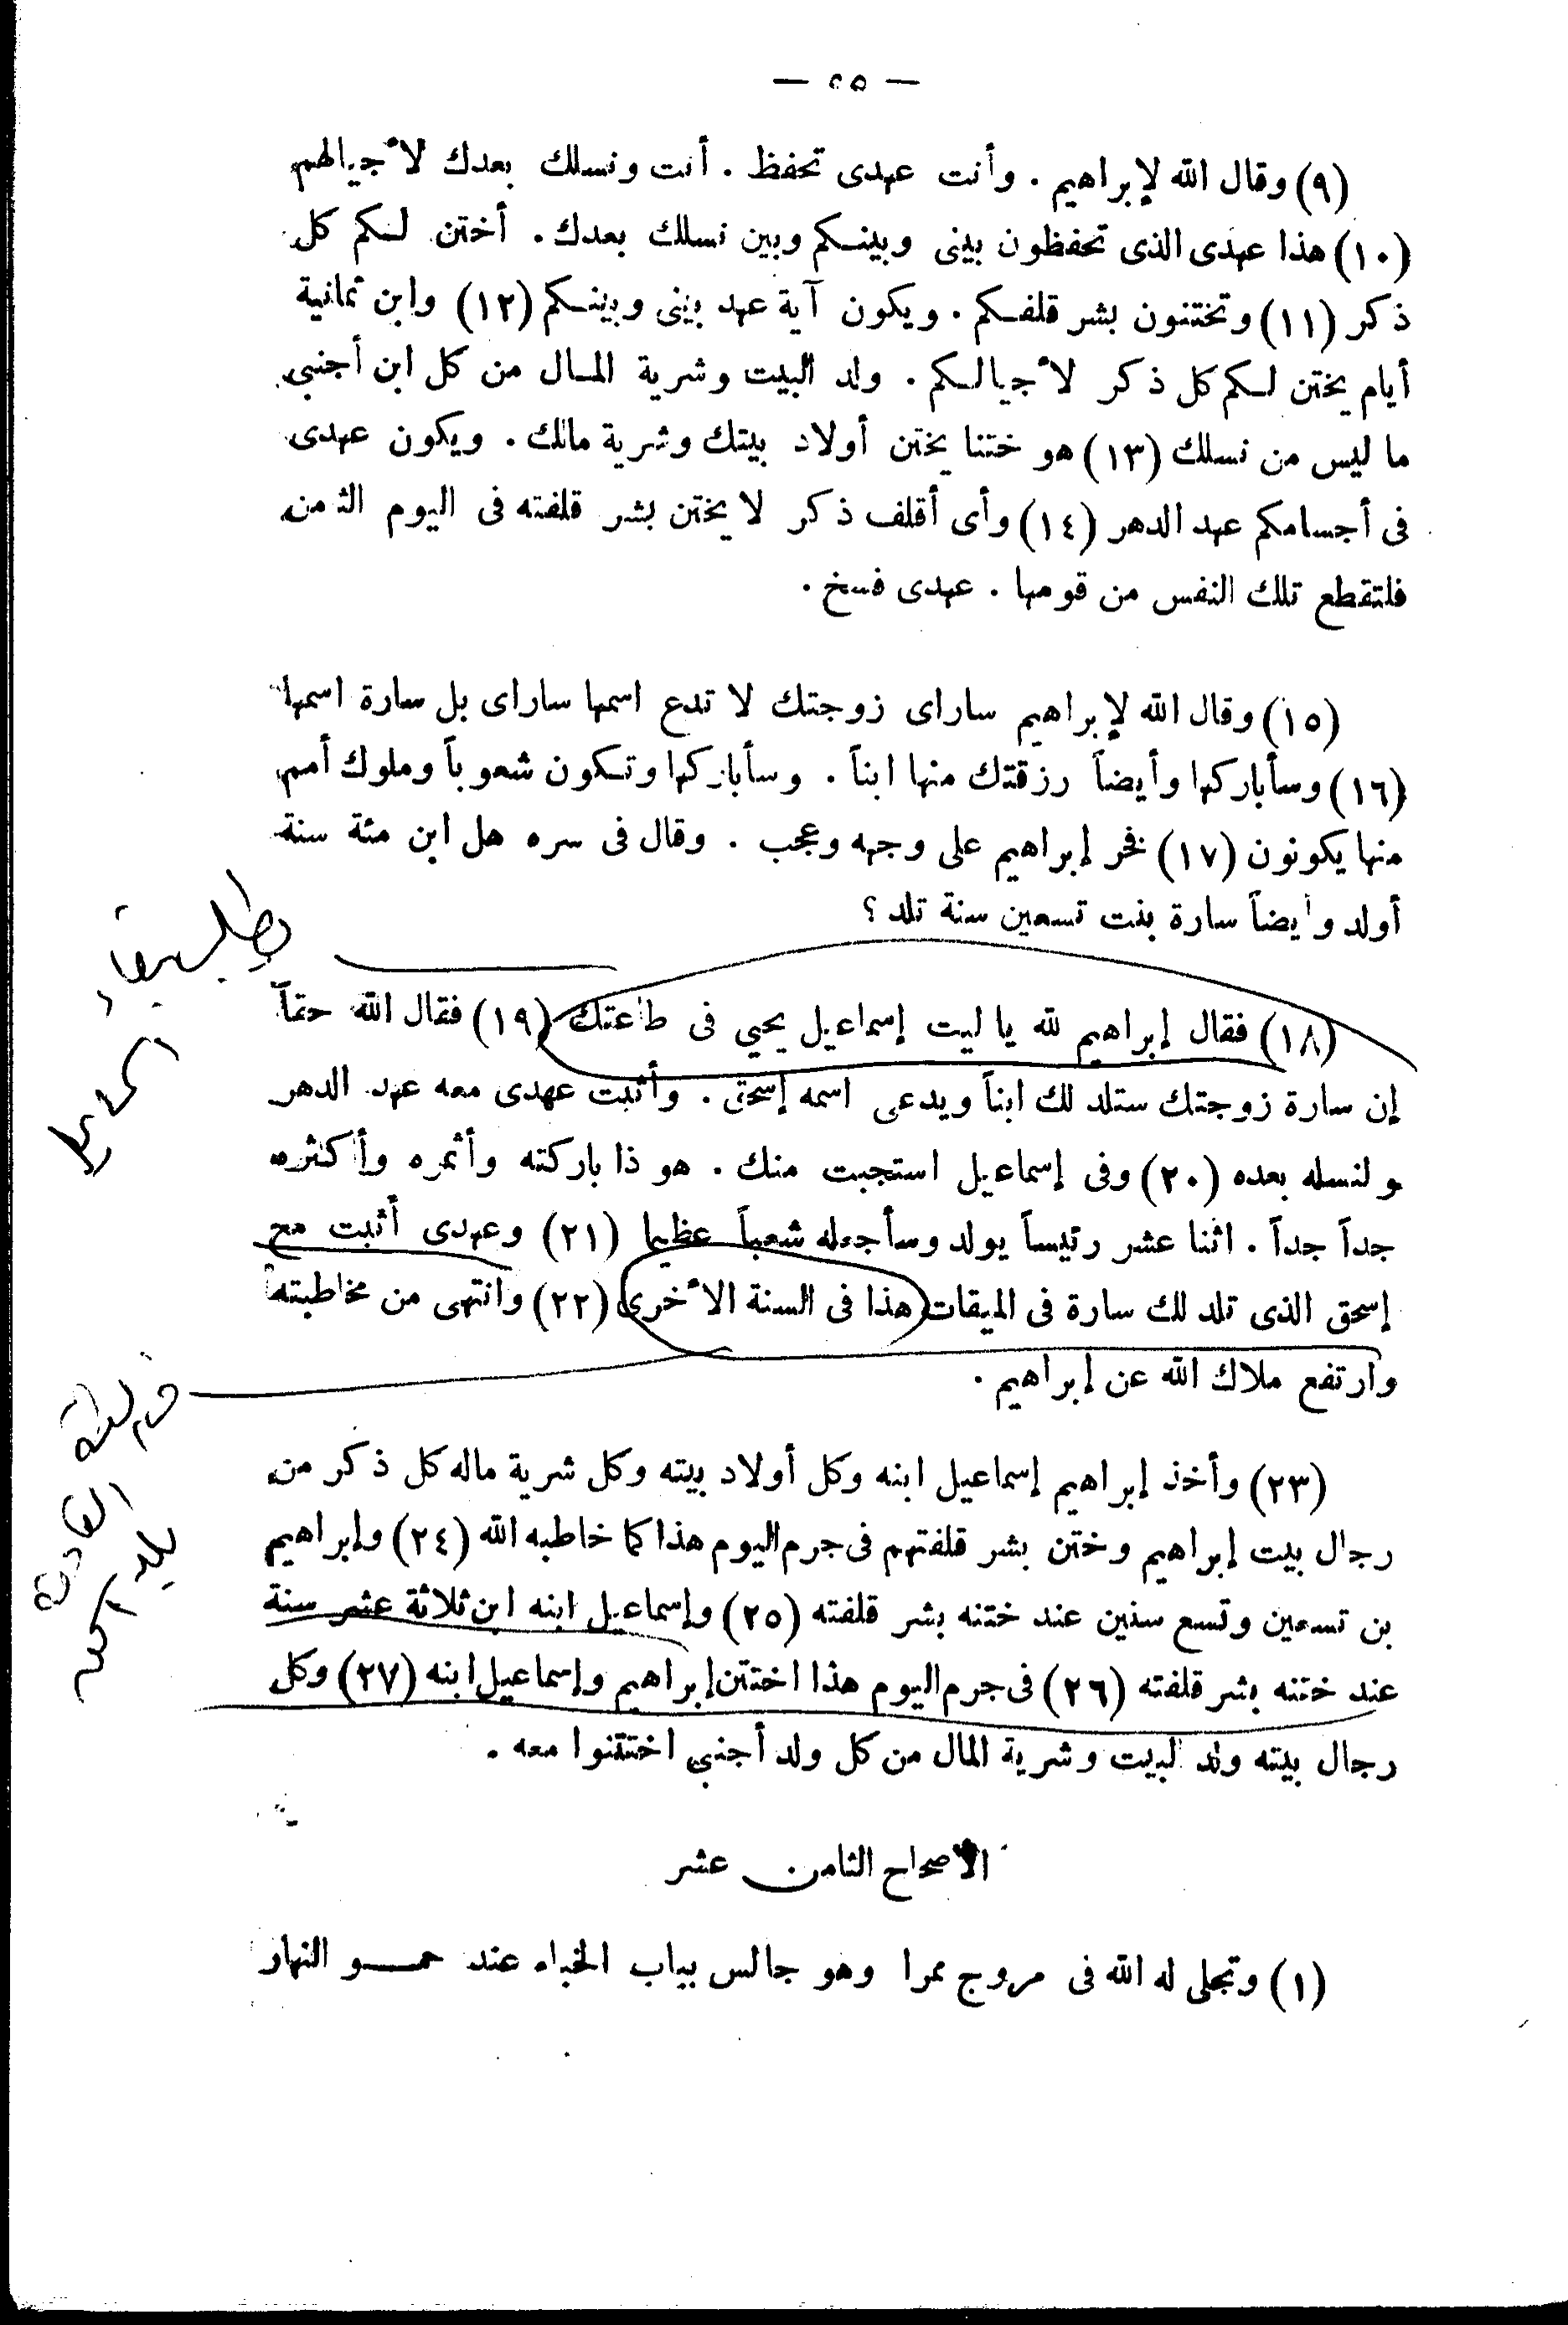 — ٥٥ —
(٩) وقال الله لإبراهيم . وأنت عهدى تحفظ . أنت ونسلك بعدك لأجيالهم
(١٠) هذا عهدى الذى تحفظون بينى وبينكم وبين نسلك بعدك . أختن لكم كل
ذكر (١١) وتختنون بشر قلفكم . ويكون آية عهد بينى وبينكم (١٢) وابن ثمانية
أيام يختن لكم كل ذكر لأجيالكم . ولد البيت وشرية المال من كل ابن أجنبى
ما ليس من نسلك (١٣) هو ختنا يختن أولاد بيتك وشرية مالك . ويكون عهدى
فى أجسامكم عهد الدهر (١٤) وأى أقلف ذكر لا يختن بشر قلفته فى اليوم الثمن
فلتقطع تلك النفس من قومها . عهدى فسخ .
(١٥) وقال الله لإبراهيم ساراى زوجتك لا تدع اسمها ساراى بل سارة اسمها
(١٦) وسأباركها وأيضاً رزقتك منها ابناً . وسأباركها وتكون شعوباً وملوك أمم
منها يكونون (١٧) فخر إبراهيم على وجهه وعجب . وقال فى سره هل ابن مئة سنة
أولد وأيضاً سارة بنت تسعين سنة تلد ؟
(١٨) فقال إبراهيم لله يا ليت إسماعيل يحيي فى طاعتك (١٩) فقال الله حقاً
إن سارة زوجتك ستلد لك ابناً ويدعى اسمه إسحق . وأثبت عهدى معه عهد الدهر
ولنسله بعده (٢٠) وفى إسماعيل استجبت منك . هو ذا باركته وأثمره وأكثره
جداً جداً . اثنا عشر رئيساً يولد وسأجعله شعباً عظيما (٢١) وعهدى أثبت مع
إسحق الذى تلد لك سارة فى الميقات هذا فى السنة الأخرى (٢٢) وانتهى من مخاطبته
وارتفع ملاك الله عن إبراهيم .
(٢٣) وأخذ إبراهيم إسماعيل ابنه وكل أولاد بيته وكل شرية ماله كل ذكر من
رجال بيت إبراهيم وختن بشر قلفتهم فى جرم اليوم هذا كما خاطبه الله (٢٤) وإبراهيم
بن تسعين وتسع سنين عند ختنه بشر قلفته (٢٥) وإسماعيل ابنه ابن ثلاثة عشر سنة
عند ختنه بشر قلفته (٢٦) فى جرم اليوم هذا اختتن إبراهيم وإسماعيل ابنه (٢٧) وكل
رجال بيته ولد البيت وشرية المال من كل ولد أجنبي اختتنوا معه .
الأصحاح الثامن عشر
(١) وتجلى له الله فى مروج ممرا وهو جالس بباب الخباء عند حمو النهار